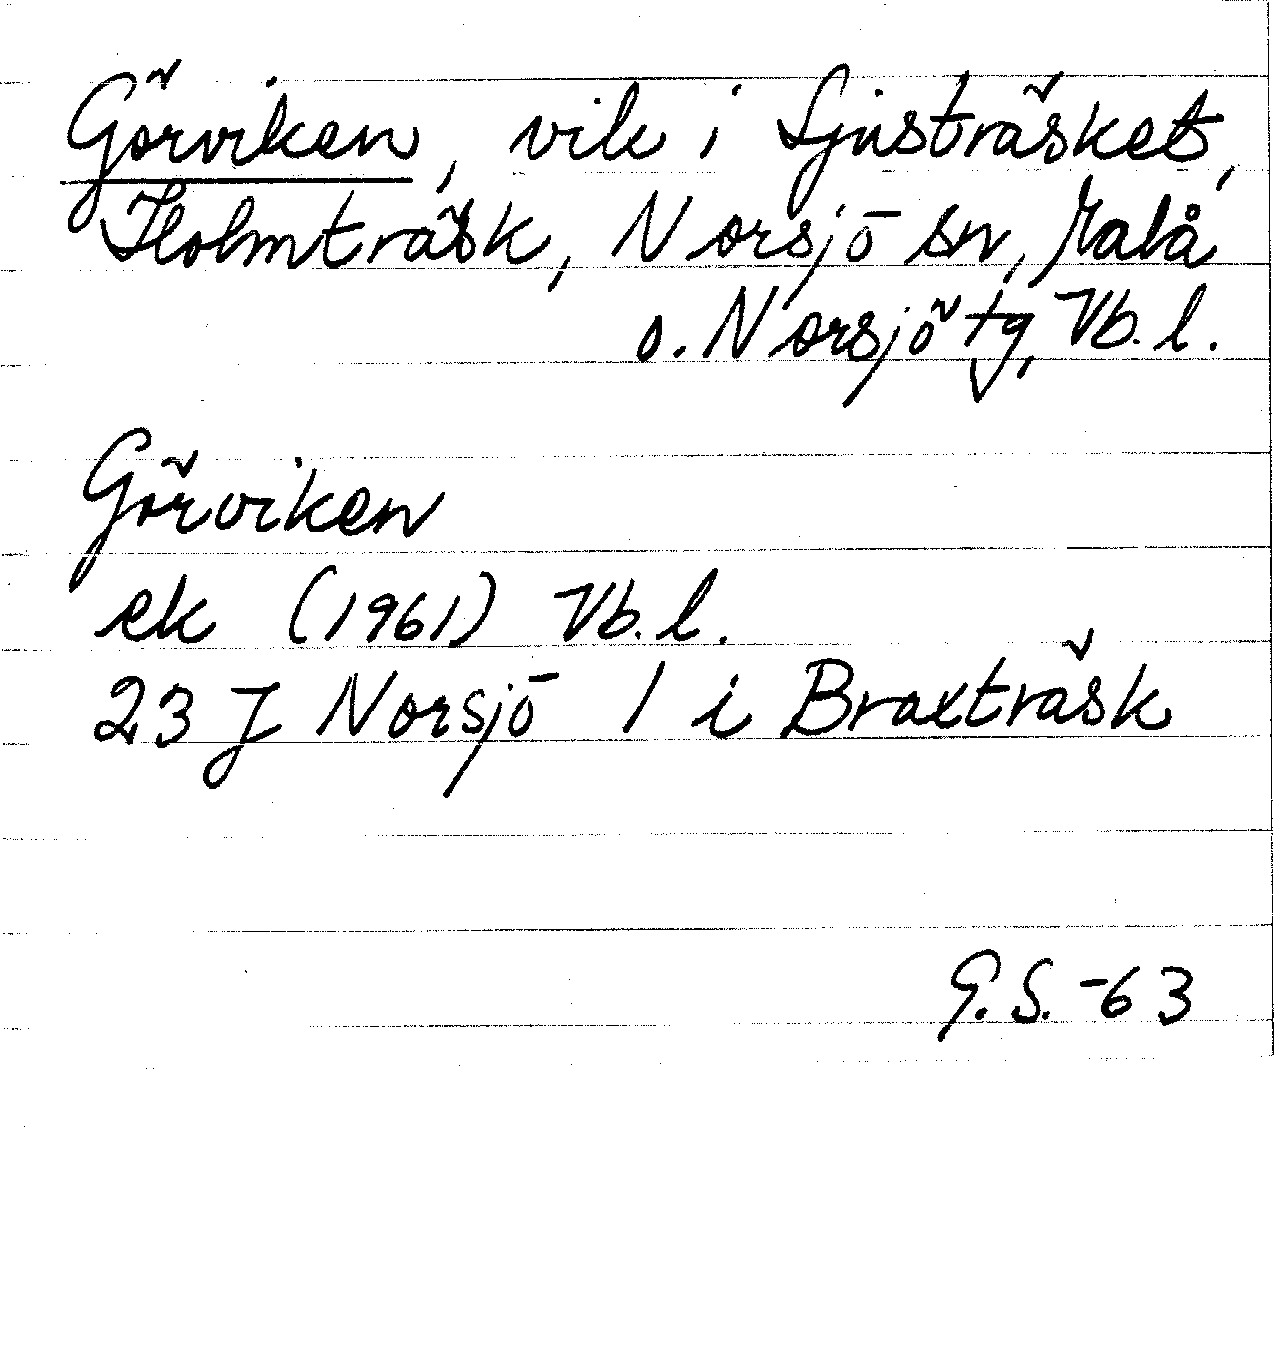 Görviken, vik i Ljusträsket,
Holmträsk, Norsjö sn, Malå
o. Norsjö tg, Vb. l.
Görviken
ek (1961) Vb. l.
23 J Norsjö 1 i Braxträsk
G.S. -63